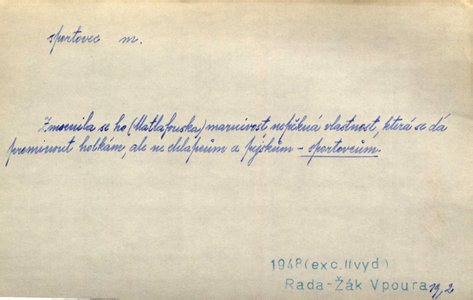 sportovec m.
Zmocnila se ho (Matlafouska) marnivost, nepěkná vlastnost, která se dá
prominout holkám, ale ne chlapcům a pejskům - sportovcům.
1948 (exc. II vyd)
Rada-Žák Vpoura 19,2